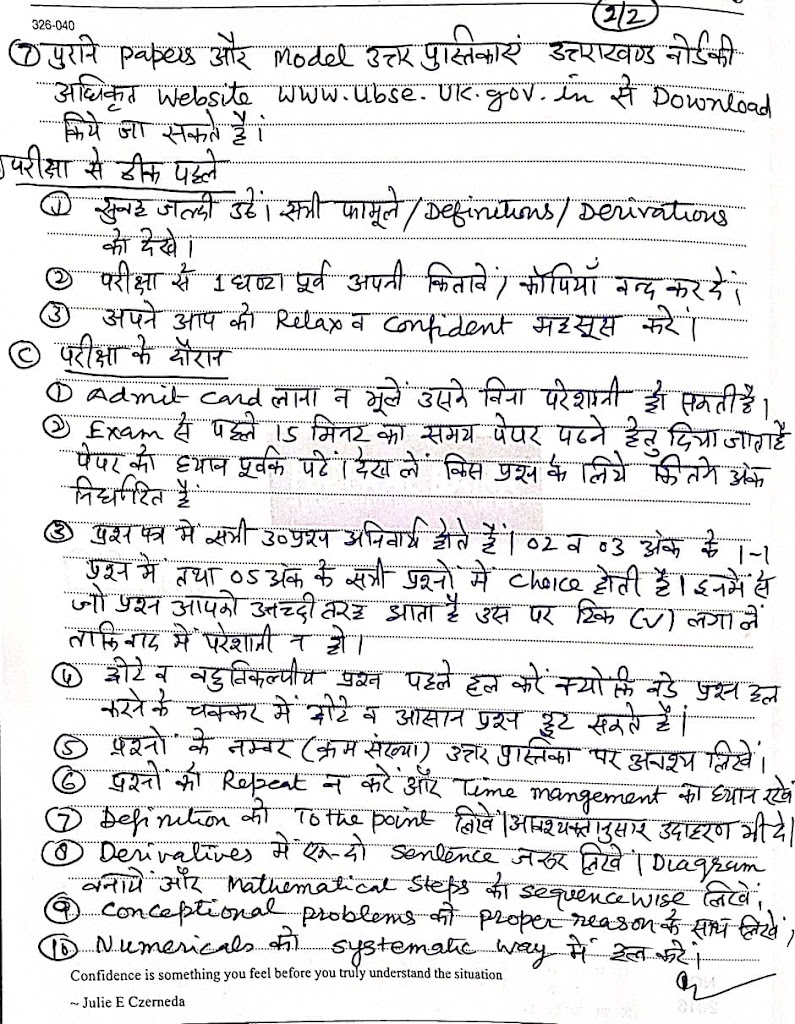 326-040
2/2
⑦ पुराने papers और Model उत्तर पुस्तिकाएं उत्तराखण्ड बोर्ड की
अधिकृत Website www.ubse.uk.gov.in से Download
किये जा सकते हैं।
परीक्षा से ठीक पहले
① सुबह जल्दी उठें। सभी फामूले / Definitions / Derivations
को देखे।
② परीक्षा से 1 घण्टा पूर्व अपनी किताबें, कॉपियाँ बन्द कर दें।
③ अपने आप को Relax व Confident महसूस करे।
Ⓒ परीक्षा के दौरान
① Admit Card लाना न भूलें उसके बिना परेशानी हो सकती है।
② Exam से पहले 15 मिनट का समय पेपर पढने हेतु दिया जाता है
पेपर को ध्यान पूर्वक पढें। देख लें किस प्रश्न के लिये कितने अंक
निर्धारित है
③ प्रश्न पत्र में सभी 30 प्रश्न अनिवार्य होते हैं। 02 व 03 अंक के 1-1
प्रश्न में तथा 05 अंक के सभी प्रश्नों में Choice होती है। इनमें से
जो प्रश्न आपको अच्छी तरह आता है उस पर टिक (√) लगा लें
ताकि बाद में परेशानी न हो।
④ छोटे व बहुविकल्पीय प्रश्न पहले हल करें क्योंकि बडे प्रश्न हल
करने के चक्कर में छोटे व आसान प्रश्न छूट सकते है।
⑤ प्रश्नों के नम्बर (क्रम संख्या) उत्तर पुस्तिका पर अवश्य लिखें।
⑥ प्रश्नों को Repeat न करें और Time mangement का ध्यान रखें
⑦ Definition को To the point लिखें। आवश्यक्तानुसार उदाहरण भी दे।
⑧ Derivatives में एक-दो sentence जरूर लिखें। Diagram
बनाये और Mathematical Steps को sequencewise लिखें।
⑨ Conceptional problems को proper reason के साथ लिखें,
⑩ Numericals को systematic way में हल करें।
Confidence is something you feel before you truly understand the situation
~ Julie E Czerneda